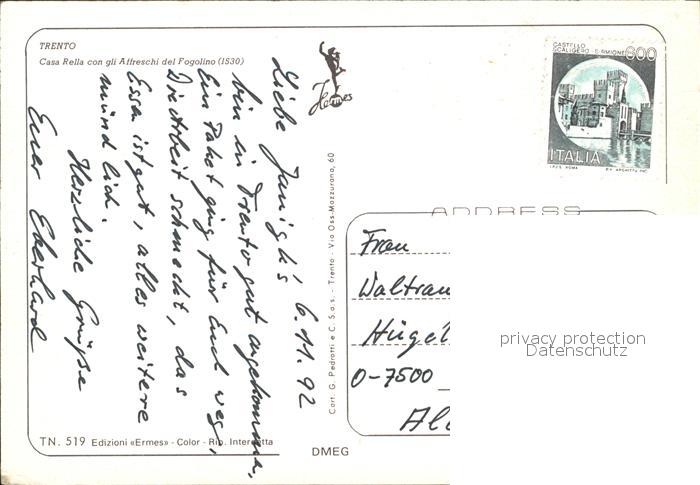 TRENTO
Casa Rella con gli Affreschi del Fogolino (1530)
Hermes
CASTELLO
SCALIGERO - SIRMIONE 600
ITALIA
I.P.Z.S. ROMA
Liebe Janigk's 6.11.92
bin in Trento gut angekommen,
Ein Paket ging für Euch weg,
Die Arbeit schmeckt, das
Essen ist gut, alles weitere
mündlich.
Herzliche Grüße
Euer Eberhard
Cart. G. Pedrotti e C. S.a.s. - Trento - Via Oss-Mazzurana, 60
ADDRESS
Frau
Waltrau
Hügel
O-7500
privacy protection
Datenschutz
TN. 519 Edizioni «Ermes» - Color - Rip. Interdetta
DMEG